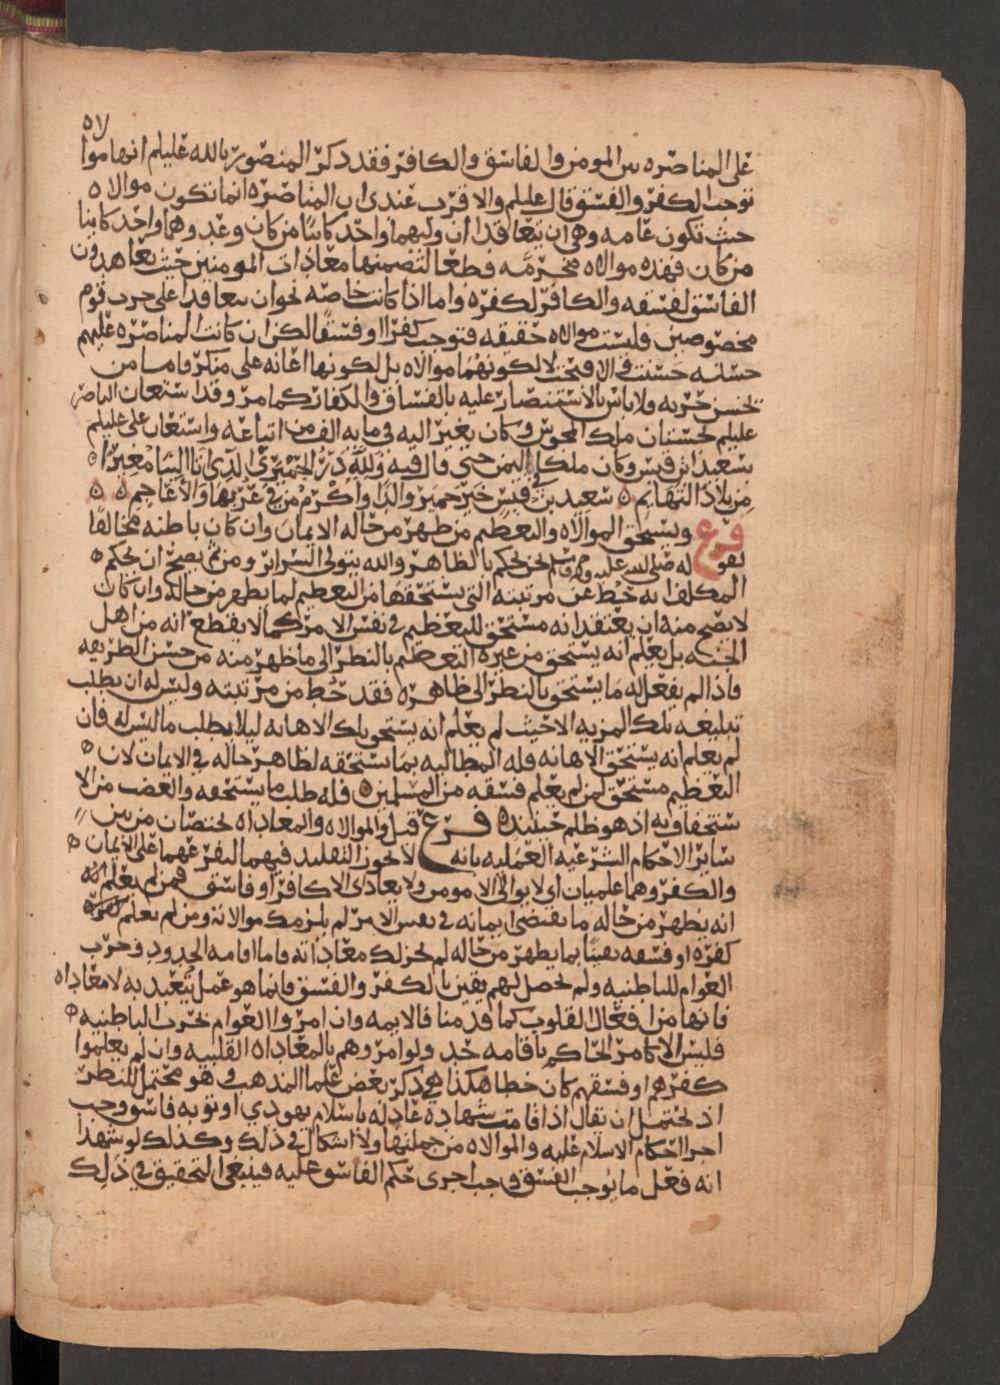 لاه
على المناصره بين المومن والفاسق والكافر فقد ذكر المنصور بالله عليلم انها موا
توجب الكفر والفسق قال عليلم والاقرب عندي ان المناصره انما تكون موالاه
حيث تكون عامه وهي ان يتعاقدا ان وليهما واحد كاينا من كان وعدوهما واحد كاينا
من كان فهذه موالاه محرمه قطعا لتضمنها معادات المومنين حيث يعاهدون
الفاسق لفسقه والكافر لكفره واما اذا كانت خاصه نحو ان يتعاقدا على حرب قوم
مخصوصين فليست موالاه حقيقه فتوجب كفرا او فسقا لكن ان كانت المناصره عليهم
حسنه حسنت والا قبحت لا لكونهما موالاه بل لكونها اعانه على منكر واما من
يحسن حربه ولا باس بالاستنصار عليه بالفساق والكفار كما مر وقد استعان الناصر
عليلم بحسنان ملك المجوس وكان يغير اليه في مايه الف من اتباعه واستعان على عليلم
بسعيد ابن قيس وكان ملكا باليمن حتى قال فيه ولله در الحميري الذي اتانا الينا مغيرا ه
من بلاد التهايم ه سعيد بن قيس خير حمير والدا واكرم من في عربها والاعاجم ه ه
فرع ويستحق الموالاه والتعظيم من ظهر من حاله الايمان وان كان باطنه مخالفا
لقوله صلى الله عليه وسلم نحن نحكم بالظاهر والله يتولى السرائر ومن ثم يصح ان يحكم ه
المكلف انه حط عن مرتبته التي يستحقها من التعظيم لما يظهر من حاله وان كان
لا يصح منه ان يعتقد انه مستحق للتعظيم في نفس الامر كما لا يقطع انه من اهل
الجنه بل يعلم انه يستحق من غيره التعظيم بالنظر الى ما ظهر منه من حسن الطريقه
فاذا لم يفعل له ما يستحق بالنظر الى ظاهره فقد حط من مرتبته وليس له ان يطلب
تبليغه تلك المزيه الا حيث لم يعلم انه يستحق تلك الاهانه ليلا يطلب ما ليس له فان
لم يعلم انه يستحق الاهانه فله المطالبه بما يستحقه لظاهر حاله في الايمان لان ه
التعظيم مستحق لمن لم يعلم فسقه من المسلمين ه فله طلب ما يستحقه والغضب من الا
ستخفاف به اذ هو ظلم حينيذ ه فرع قيل والموالاه والمعاداه تختصان من بين
سائر الاحكام الشرعيه العمليه بانه لا يجوز التقليد فيهما لتفرعهما على الايمان ه
والكفر وهما علميان اي لا يوالى الا مومن ولا يعادى الا كافر او فاسق فمن لم يعلم
انه يظهر من حاله ما يقتضي ايمانه في نفس الامر لم يلزمك موالاته ومن لم يعلم
كفره او فسقه يقينا بما يظهر من حاله لم يجز لك معاداته فاما اقامه الحدود وحرب
العوام للباطنيه ولم يحصل لهم يقين بالكفر والفسق فانما هو عمل يتعبد به لا معاداه
فانها من افعال القلوب كما قدمنا فالايمه وان امروا العوام بحرب الباطنيه ه
فليس الا كامر الحاكم باقامه حد ولو امروهم بالمعاداه القلبيه وان لم يعلموا
كفرهم او فسقهم كان خطا هكذا ذكر بعض علما المذهب وهو محتمل للنظر
اذ يحتمل ان يقال اذا قامت شهاده عادله باسلام يهودي او توبه فاسق وجب
اجرا احكام الاسلام عليه والموالاه من جملتها ولا اشكال في ذلك وكذلك لو شهدا
انه فعل ما يوجب الفسق وجب اجرى حكم الفاسق عليه فينبغي التحقيق في ذلك